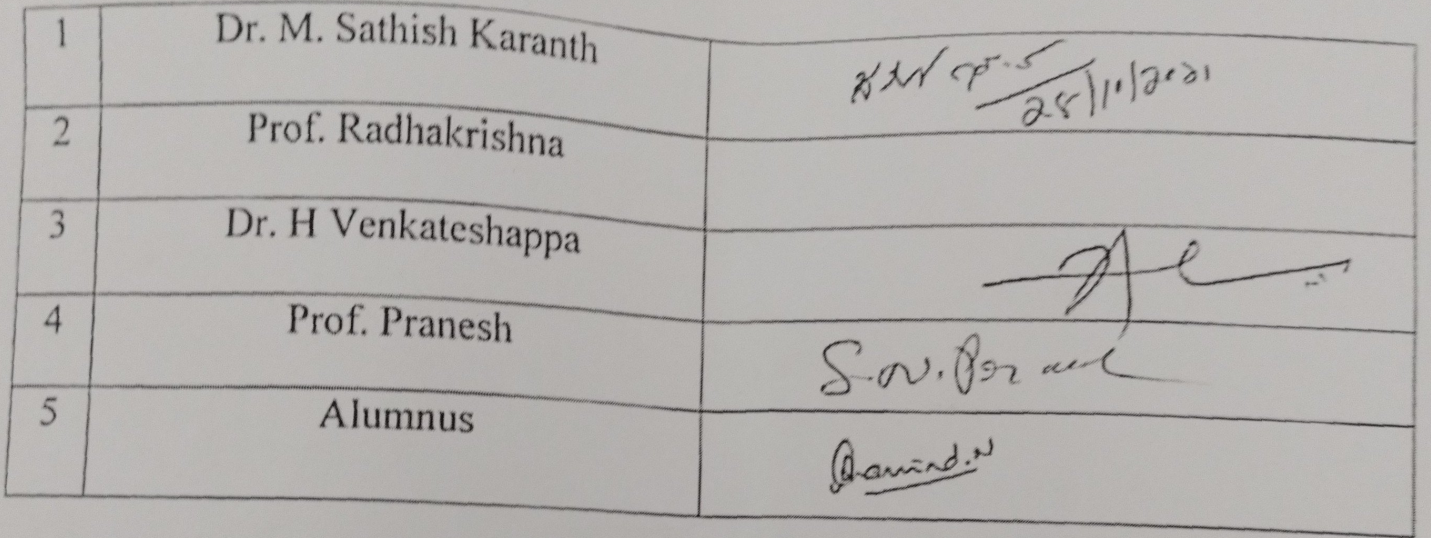 1 Dr. M. Sathish Karanth
28/10/2021
2 Prof. Radhakrishna
3 Dr. H Venkateshappa
4 Prof. Pranesh
S.N.
5 Alumnus
Aravind.N